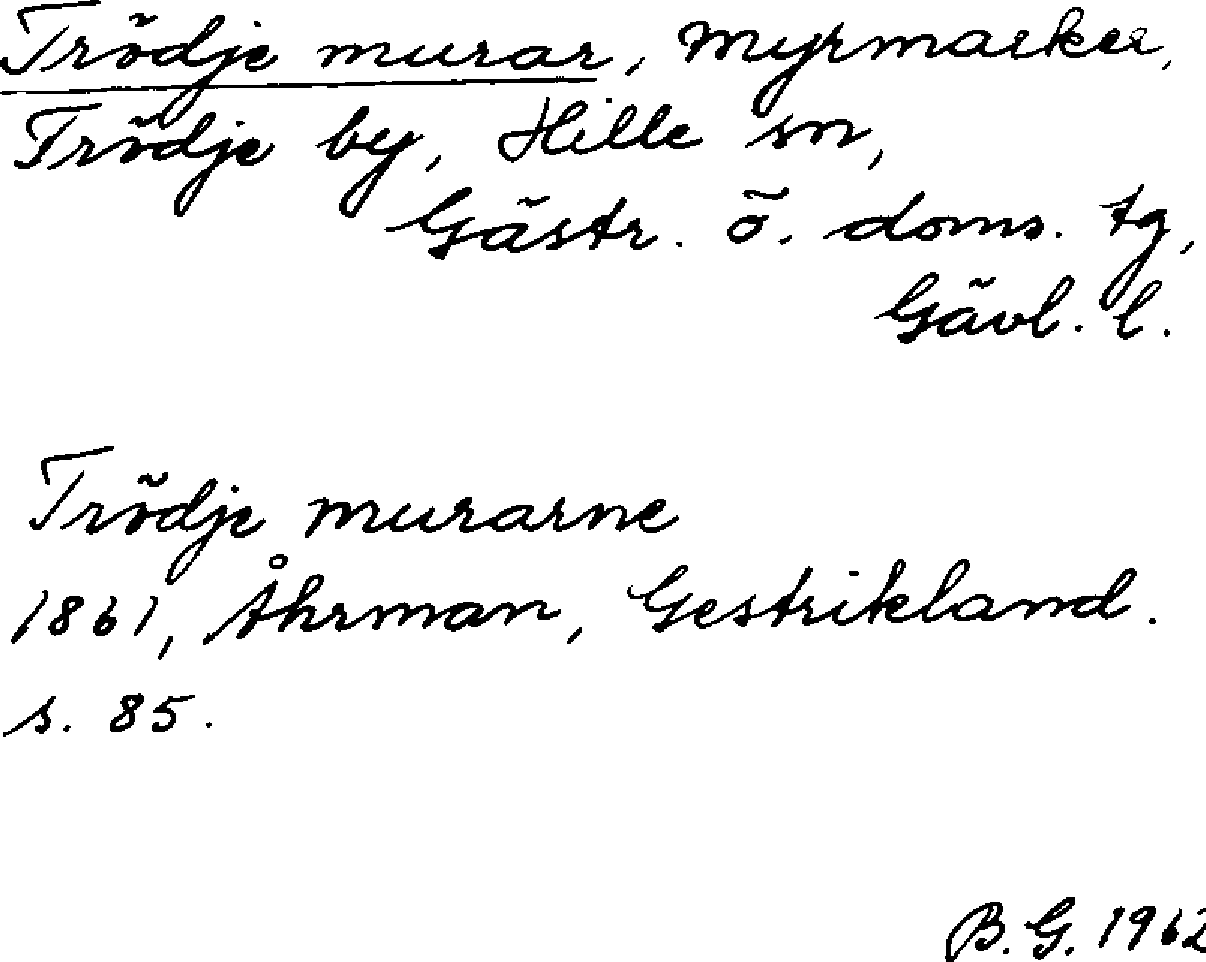 Trödje murar, Myrmarker,
Trödje by, Hille sn,
Gästr. ö. doms. tg,
Gävl. l.
Trödje murarne
1861, Åhrman, Gestrikland.
s. 85.
B. G. 1962